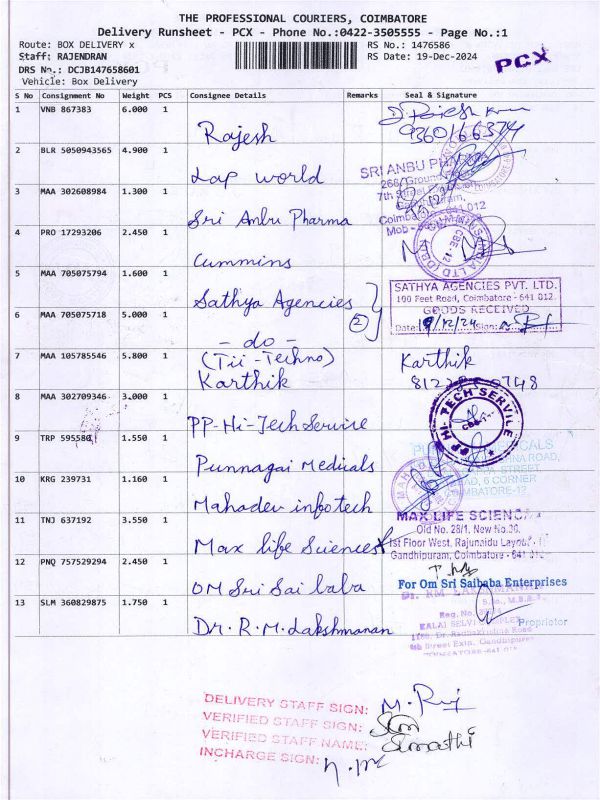 THE PROFESSIONAL COURIERS, COIMBATORE
Delivery Runsheet - PCX - Phone No.:0422-3505555 - Page No.:1
Route: BOX DELIVERY x
RS No.: 1476586
Staff: RAJENDRAN
RS Date: 19-Dec-2024
PCX
DRS No.: DCJB147658601
Vehicle: Box Delivery
S No Consignment No Weight PCS Consignee Details Remarks Seal & Signature
1 VNB 867383 6.000 1 Rajesh
2 BLR 5050943565 4.900 1 Lap world
3 MAA 302608984 1.300 1 Sri Anbu Pharma
SRI ANBU PHARMA
4 PRO 17293206 2.450 1 Cummins
5 MAA 705075794 1.600 1 Sathya Agencies
SATHYA AGENCIES PVT. LTD.
100 Feet Road, Coimbatore - 641 012.
GOODS RECEIVED
Date: 19/12/24 Sign:
6 MAA 705075718 5.000 1 - do -
2
7 MAA 105785546 5.800 1 (Tii-Techno)
Karthik
Karthik
8 MAA 302709346 3.000 1 PP-Hi-Tech Service
PP HI-TECH SERVICE
9 TRP 595580 1.550 1 Punnagai Medicals
10 KRG 239731 1.160 1 Mahadev infotech
11 TNJ 637192 3.550 1 Max life Sciences
MAX LIFE SCIENC
Old No. 28/1, New No.30,
1st Floor West, Rajunaidu Layout,
Gandhipuram, Coimbatore - 641 012
12 PNQ 757529294 2.450 1 OM Sri Sai baba
For Om Sri Saibaba Enterprises
Proprietor
13 SLM 360829875 1.750 1 Dr. R. M. Lakshmanan
DELIVERY STAFF SIGN:
VERIFIED STAFF SIGN:
VERIFIED STAFF NAME: Sumathi
INCHARGE SIGN: